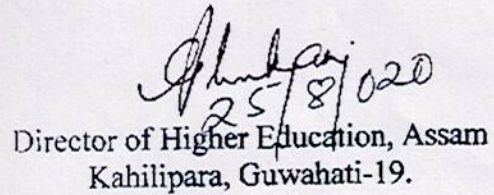 25/8/020
Director of Higher Education, Assam
Kahilipara, Guwahati-19.